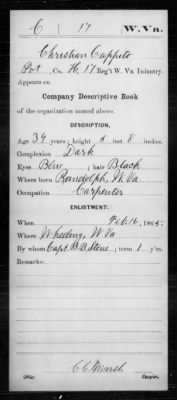 C 17 W. Va.
Christian Cappito
Pvt., Co. H, 17 Reg't W. Va. Infantry.
Appears on
Company Descriptive Book
of the organization named above.
DESCRIPTION.
Age 39 years; height 5 feet 8 inches.
Complexion Dark
Eyes Blue; hair Black
Where born Randolph, W Va
Occupation Carpenter
ENLISTMENT.
When Feb 16, 1865.
Where Wheeling, W Va
By whom Capt. B B Stone; term 1 y'rs.
Remarks:
C. C. Marsh
Copyist.